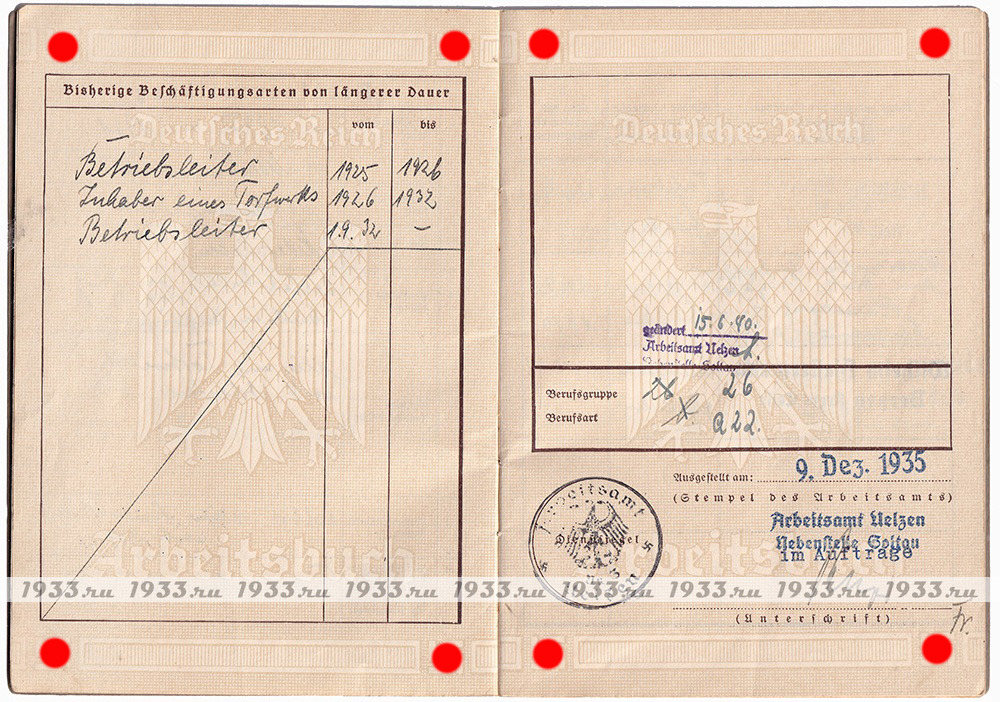 Bisherige Beschäftigungsarten von längerer Dauer
vom bis
Deutsches Reich
Betriebsleiter 1925 1926
Inhaber eines Torfwerks 1926 1932
Betriebsleiter 1.9.32 –
Arbeitsbuch
Deutsches Reich
geändert 15.6.40.
Arbeitsamt Uelzen
Nebenstelle Soltau
Berufsgruppe 26 26
Berufsart a22.
Ausgestellt am: 9. Dez. 1935
(Stempel des Arbeitsamts)
Arbeitsamt
Dienstsiegel
Uelzen
Arbeitsamt Uelzen
Nebenstelle Soltau
im Auftrage
(Unterschrift)
1933.ru 1933.ru 1933.ru 1933.ru 1933.ru 1933.ru 1933.ru 1933.ru